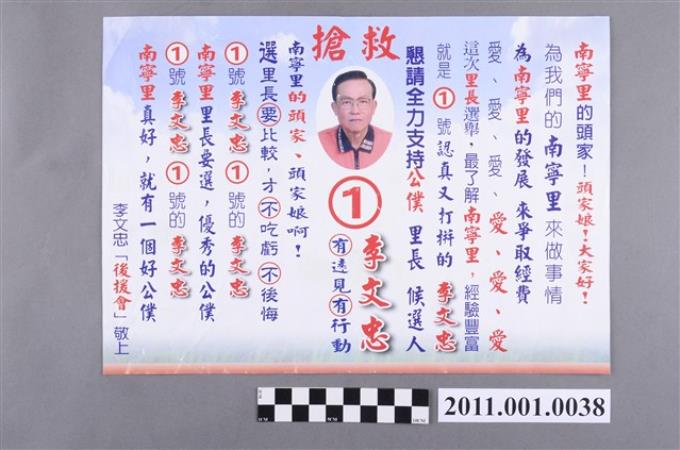 南寧里的頭家！頭家娘！大家好！
為我們的南寧里來做事情
為南寧里的發展 來爭取經費
愛、愛、愛、愛、愛、愛
這次里長選舉，最了解南寧里，經驗豐富
就是①號認真又打拼的李文忠
懇請全力支持公僕 里長 候選人
搶救
①
李文忠
有遠見有行動
南寧里的頭家、頭家娘啊！
選里長要比較，才不吃虧不後悔
①號李文忠①號的李文忠
南寧里里長要選，優秀的公僕
①號李文忠①號的李文忠
南寧里真好，就有一個好公僕
李文忠「後援會」敬上
2011.001.0038